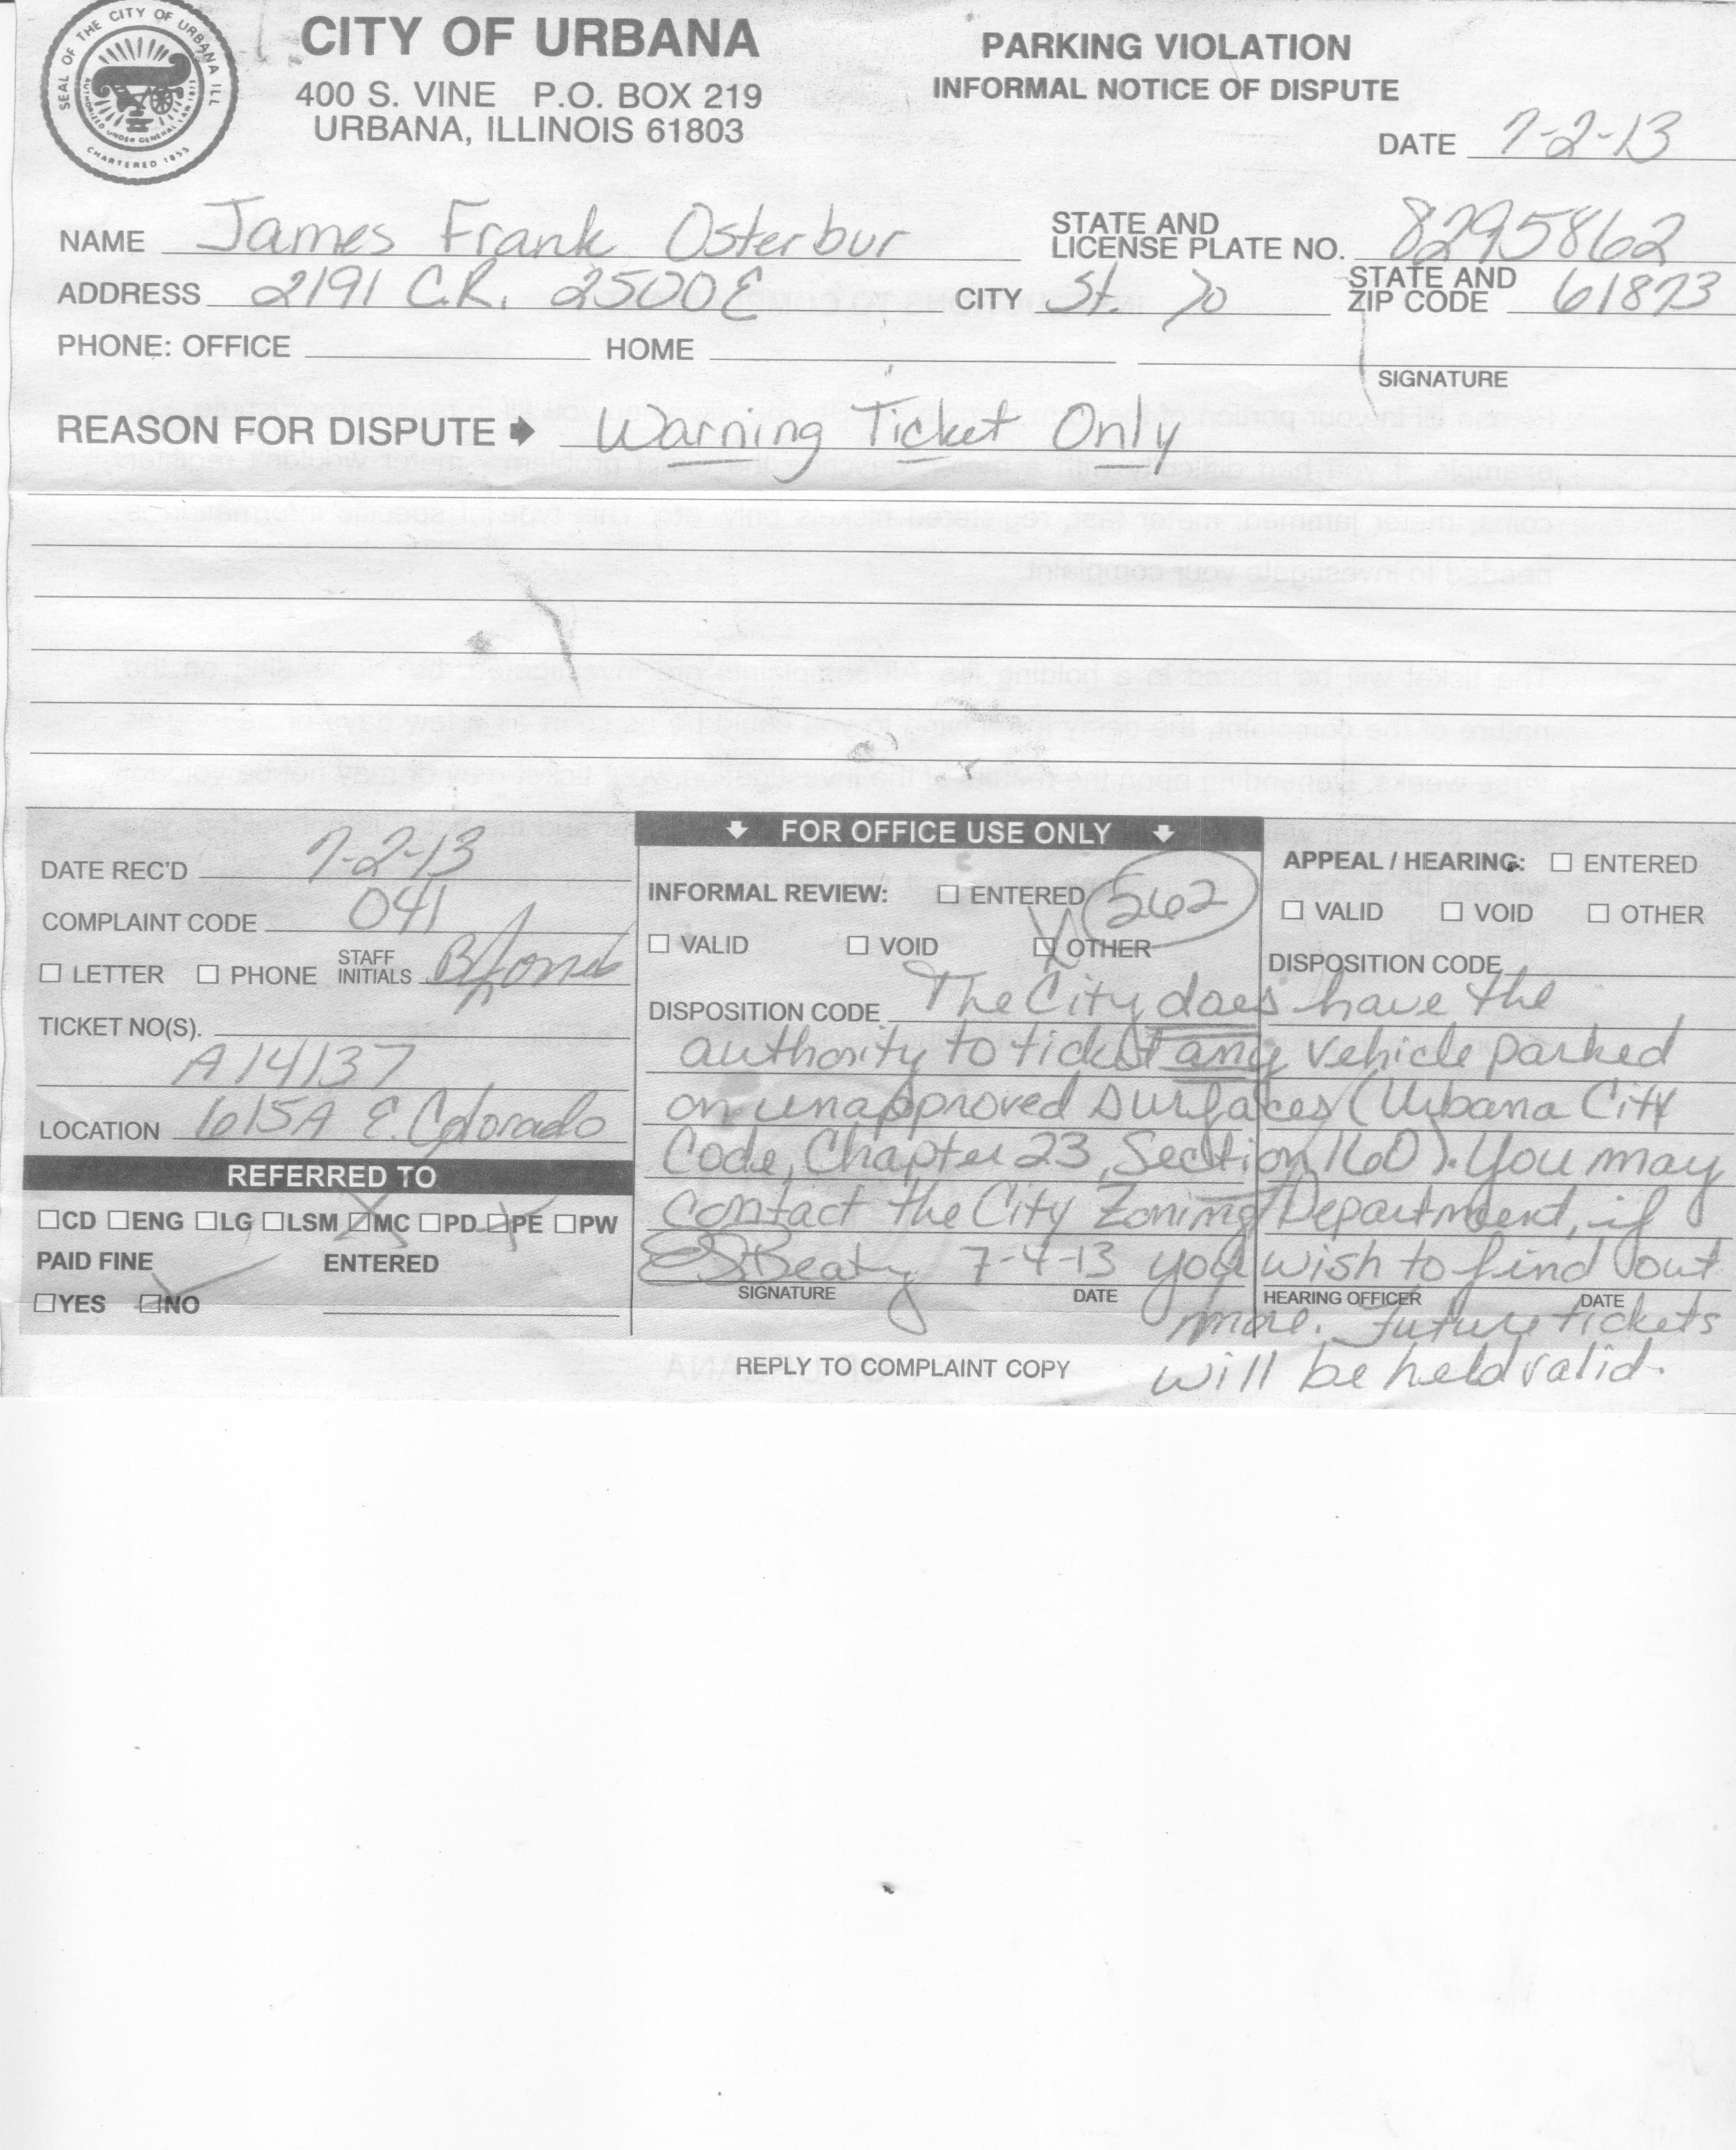 SEAL OF THE CITY OF URBANA ILL
CHARTERED 1855
CITY OF URBANA
400 S. VINE P.O. BOX 219
URBANA, ILLINOIS 61803
PARKING VIOLATION
INFORMAL NOTICE OF DISPUTE
DATE 7-2-13
NAME James Frank Osterbur
STATE AND
LICENSE PLATE NO. 8295862
ADDRESS 2191 C.R. 2500E CITY St. Jo
STATE AND
ZIP CODE 61873
PHONE: OFFICE HOME
SIGNATURE
REASON FOR DISPUTE Warning Ticket Only
FOR OFFICE USE ONLY
DATE REC'D 7-2-13
COMPLAINT CODE 041
LETTER PHONE STAFF INITIALS
TICKET NO(S).
A14137
LOCATION 615A E. Colorado
REFERRED TO
CD ENG LG LSM MC PD PE PW
PAID FINE ENTERED
YES NO
INFORMAL REVIEW: ENTERED 262
VALID VOID OTHER
APPEAL / HEARING: ENTERED
VALID VOID OTHER
DISPOSITION CODE
DISPOSITION CODE The City does have the
authority to ticket any vehicle parked
on unapproved surfaces (Urbana City
Code, Chapter 23, Section 160). You may
contact the City Zoning Department, if
Beaty 7-4-13 you wish to find out
SIGNATURE DATE HEARING OFFICER DATE
more. Future tickets
will be held valid.
REPLY TO COMPLAINT COPY